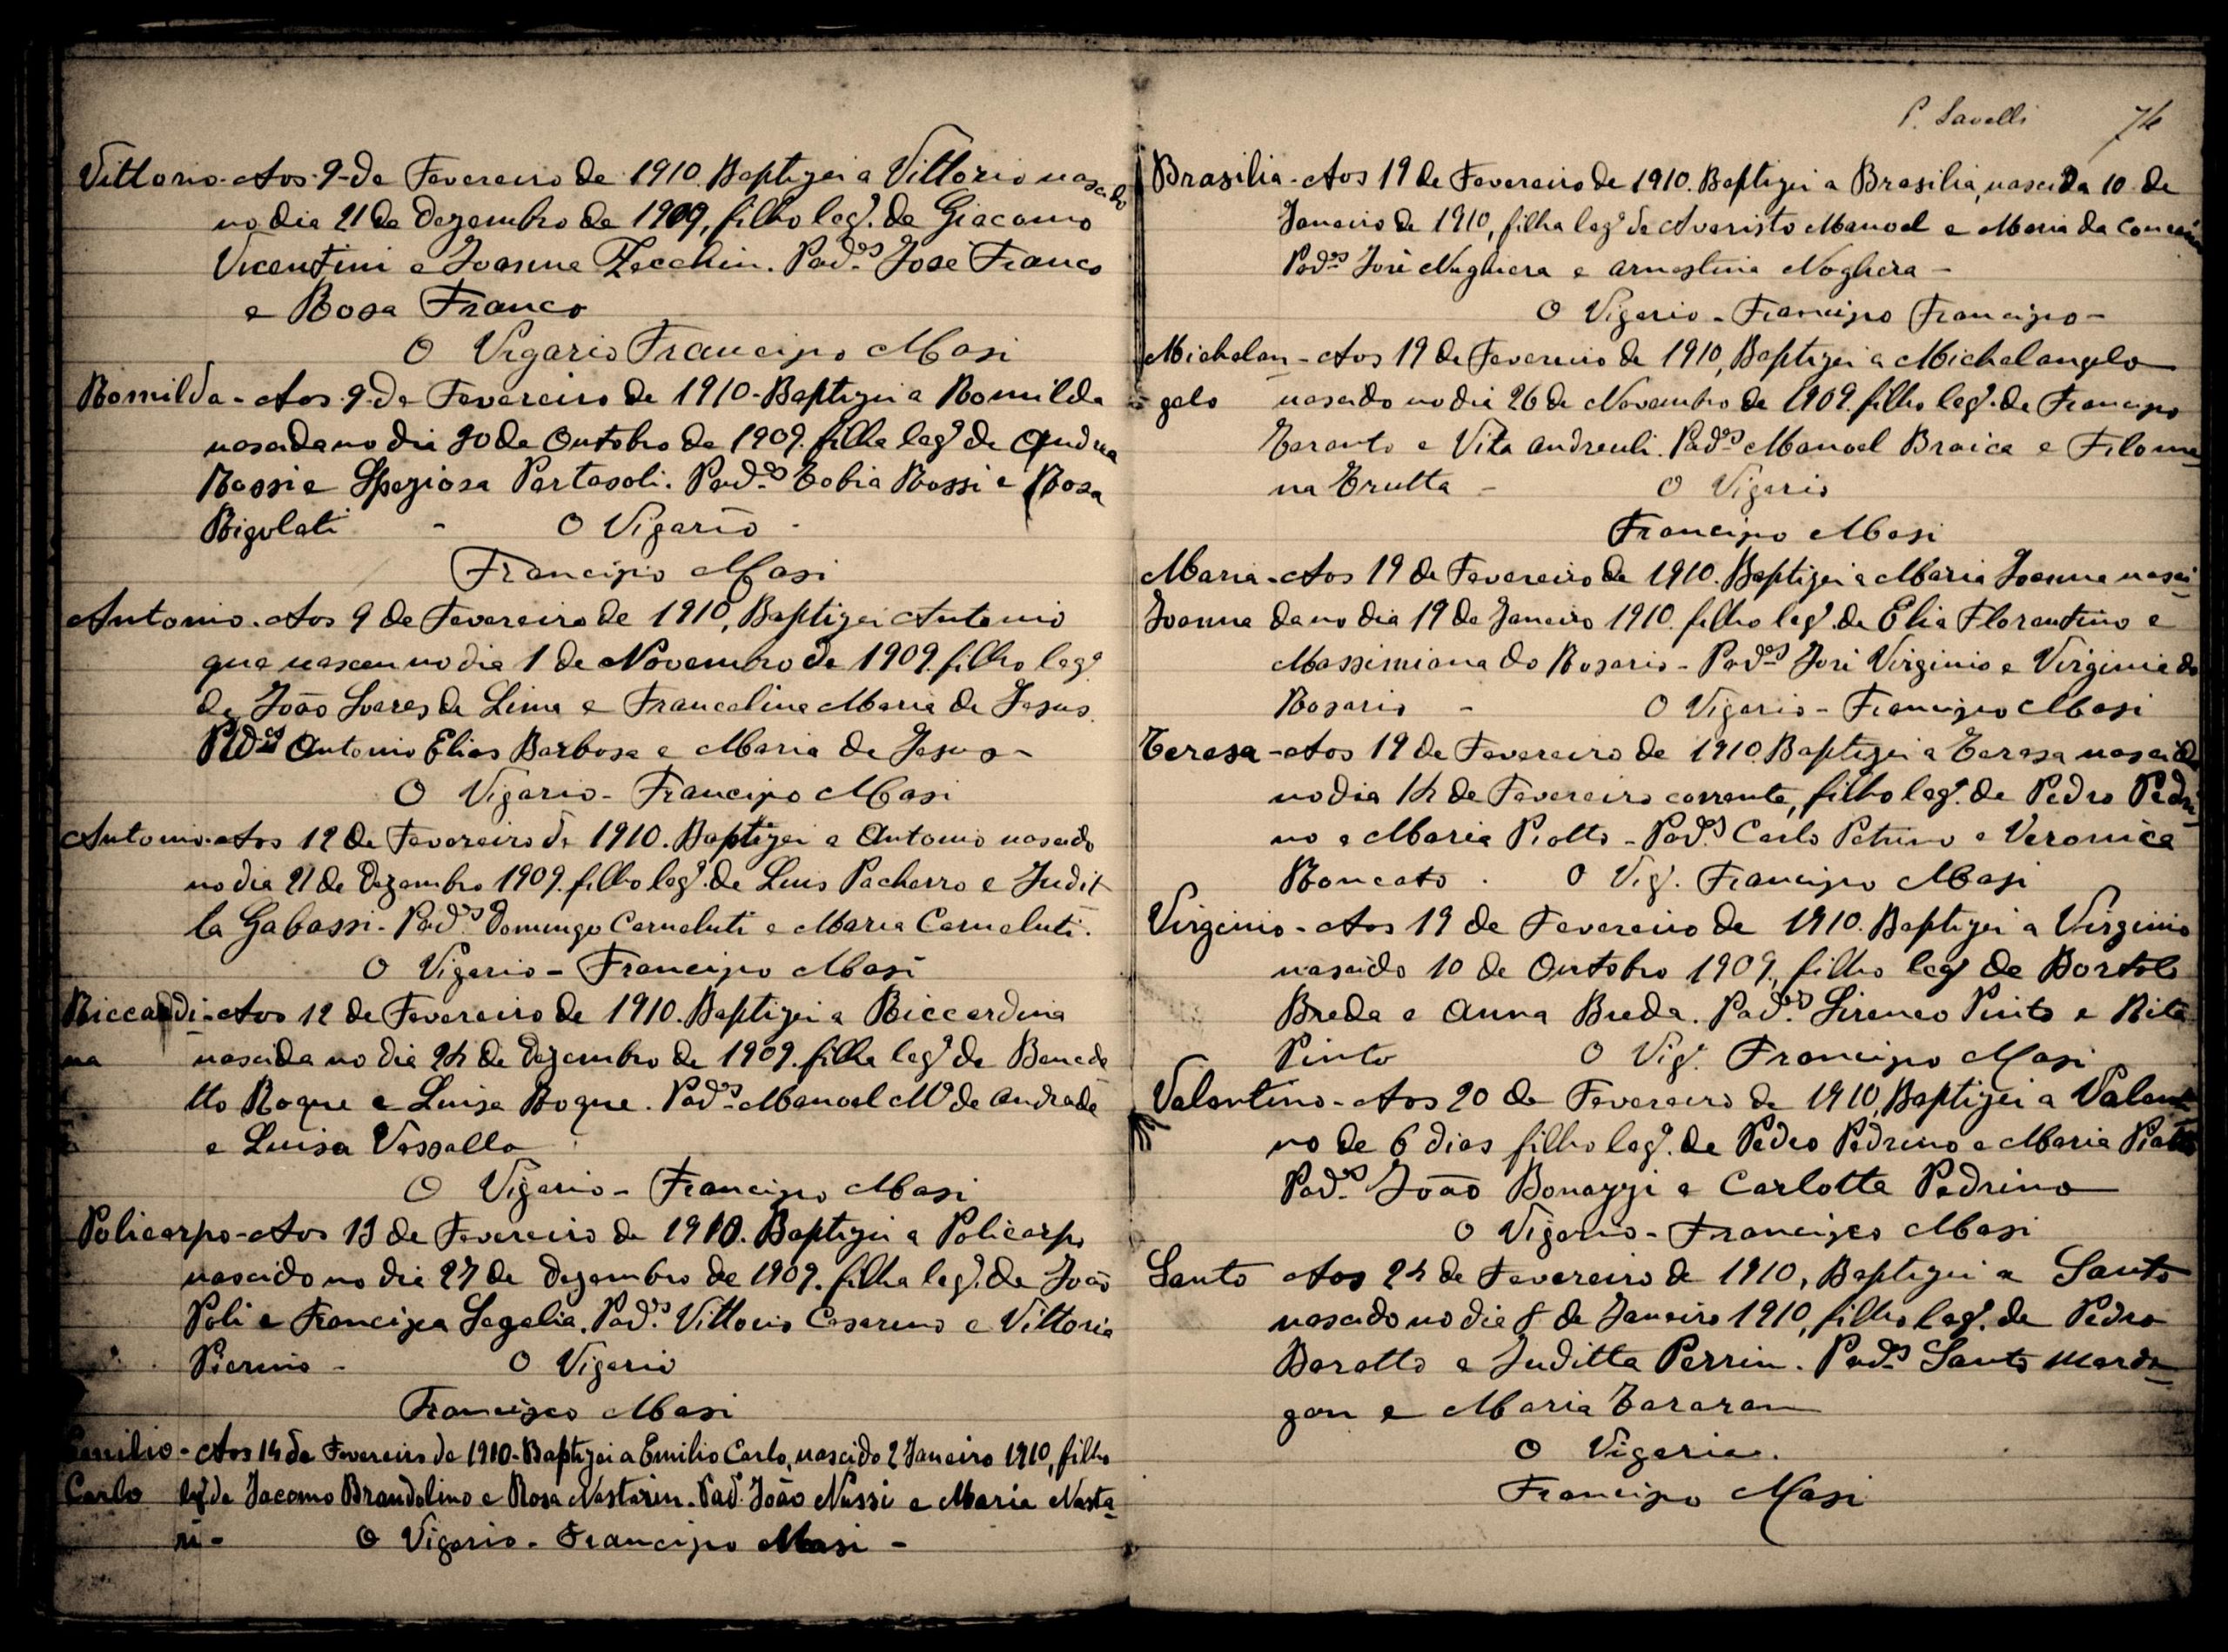 Vittorio - Aos 9 de Fevereiro de 1910. Baptizei a Vittorio nascido
no dia 21 de Dezembro de 1909, filho leg.º de Giacomo
Vicentini e Joanna Zecchin. Pad.os José Franco
e Rosa Franco
O Vigario Francisco Masi
Romilda - Aos 9 de Fevereiro de 1910 - Baptizei a Romilda
nascida no dia 30 de Outubro de 1909. filha leg.º de Andrea
Rossi e Speziosa Partasoli. Pad.os Tobia Rossi e Rosa
Rigolati - O Vigario -
Francisco Masi
Antonio - Aos 9 de Fevereiro de 1910, Baptizei Antonio
que nasceu no dia 1 de Novembro de 1909. filho leg.º
de João Soares de Lima e Francelina Maria de Jesus.
Pad.os Antonio Elias Barbosa e Maria de Jesus -
O Vigario - Francisco Masi
Antonio - Aos 12 de Fevereiro de 1910. Baptizei a Antonio nascido
no dia 21 de Dezembro 1909. filho leg.º de Luis Pacharro e Judit
ta Gabassi - Pad.os Domingo Carneluti e Maria Carneluti.
O Vigario - Francisco Masi
Riccardi - Aos 12 de Fevereiro de 1910. Baptizei a Riccardina
na nascida no dia 24 de Dezembro de 1909. filha leg.º de Benede
tto Roque e Luisa Roque. Pad.os Manoel M.º de Andrade
e Luisa Vassallo
O Vigario - Francisco Masi
Policarpo - Aos 13 de Fevereiro de 1910. Baptizei a Policarpo
nascido no dia 27 de Dezembro de 1909. filha leg.º de João
Poli e Francisca Segalia. Pad.os Vittorio Casarino e Vittoria
Pierino - O Vigario
Francisco Masi
Emilio - Aos 14 de Fevereiro de 1910 - Baptizei a Emilio Carlo, nascido 2 Janeiro 1910, filho
Carlo leg.º de Jacomo Brandolino e Rosa Nastarin. Pad. João Nassi e Maria Nasta-
ri - O Vigario - Francisco Masi -
P. Savelli 74
Brasilia - Aos 19 de Fevereiro de 1910. Baptizei a Brasilia, nascida 10 de
Janeiro de 1910, filha leg.º de Avaristo Manoel e Maria da
Pad.os José Nughiera e Arnestina Noghera -
O Vigario - Francisco Francisco -
Michelan - Aos 19 de Fevereiro de 1910, Baptizei a Michelangelo
gelo nascido no dia 26 de Novembro de 1909. filho leg.º de Francisco
Taranto e Vita Andreuli. Pad.os Manoel Braica e Filome-
na Trutta - O Vigario
Francisco Masi
Maria - Aos 19 de Fevereiro de 1910. Baptizei a Maria Joanna nasci-
Joanna da no dia 19 de Janeiro 1910. filho leg.º de Elia Florantino e
Massimiana do Rosario - Pad.os José Virginio e Virginia do
Rosario - O Vigario - Francisco Masi
Teresa - Aos 19 de Fevereiro de 1910. Baptizei a Teresa nascida
no dia 14 de Fevereiro corrente, filho leg.º de Pedro Pedri
no e Maria Piotto - Pad.os Carlo Petrino e Veronica
Roncato . O Vig.º Francisco Masi
Virginio - Aos 19 de Fevereiro de 1910. Baptizei a Virginio
nascido 10 de Outobro 1909, filho leg.º de Bortolo
Breda e Anna Breda. Pad.os Sireneo Pinto e Rita
Pinto O Vig.º Francisco Masi
Valantino - Aos 20 de Fevereiro de 1910, Baptizei a Valanti
no de 6 dias filho leg.º de Pedro Pedrino e Maria Piotto
Pad.os João Bonazzi e Carlotta Padrino
O Vigario - Francisco Masi
Santo Aos 24 de Fevereiro de 1910, Baptizei a Santo
nascido no dia 8 de Janeiro 1910, filho leg.º de Pedro
Baratto e Juditta Perrin. Pad.os Santo Marda-
gan e Maria Tararan
O Vigario.
Francisco Masi